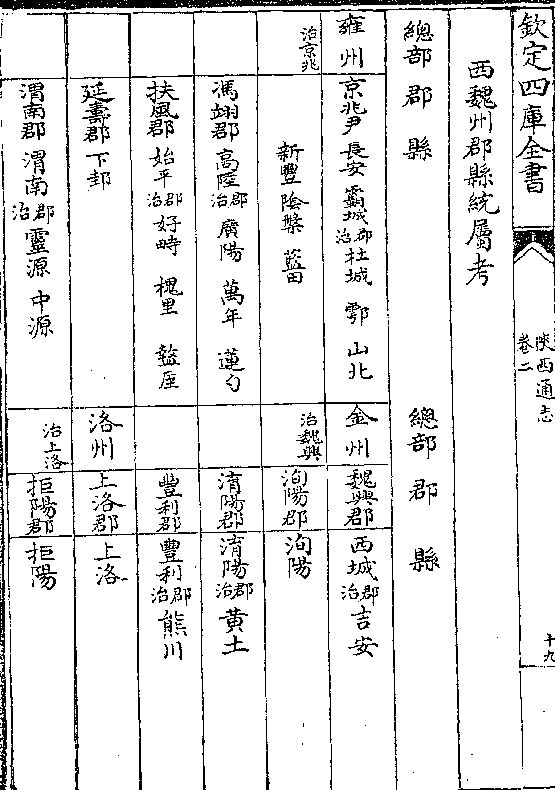 欽定四庫全書
陝西通志
卷二
十九
西魏州郡縣統屬考
總部 郡 縣
總部 郡 縣
雍州 京兆尹 長安 霸城郡治 杜城 鄠 山北
金州 魏興郡 西城郡治 吉安
治京兆 新豐 陰槃 藍田
治魏興 洵陽郡 洵陽
馮翊郡 高陸郡治 廣陽 萬年 蓮勺
淯陽郡 淯陽郡治 黃土
扶風郡 始平郡治 好畤 槐里 盩厔
豐利郡 豐利郡治 熊川
延壽郡 下邽
洛州 上洛郡 上洛
渭南郡 渭南郡治 靈源 中源
治上洛 拒陽郡 拒陽